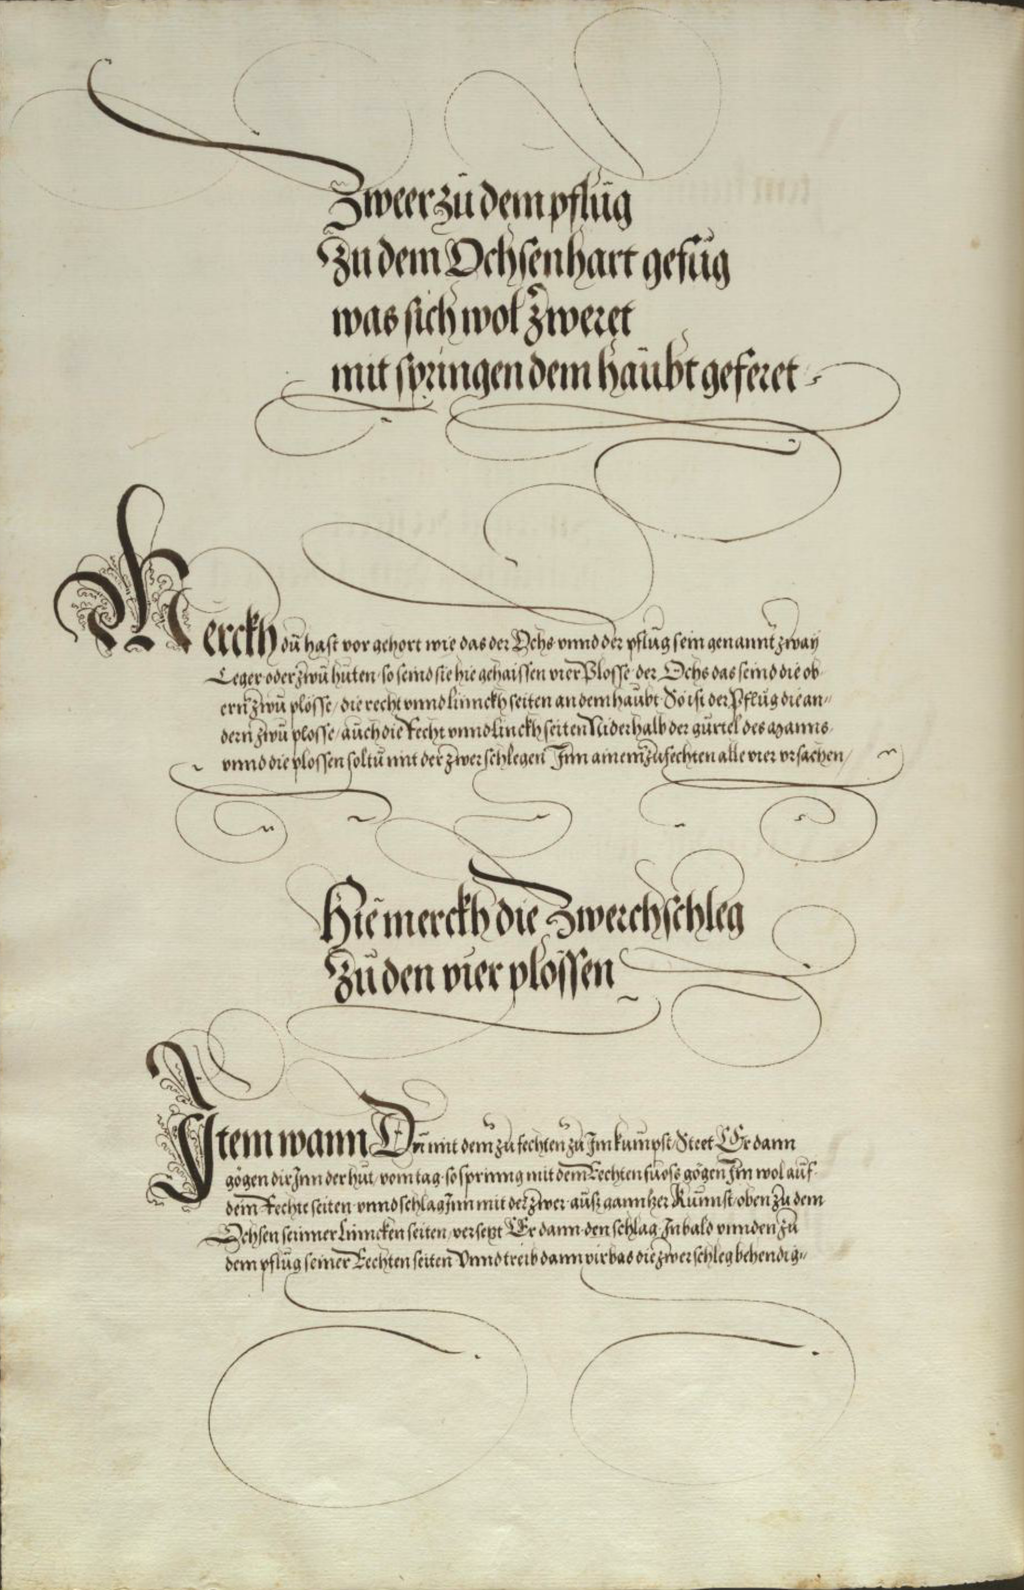 Zweer zů dem pflůg
Zu dem Ochsen hart gefůg
was sich wol zweret
mit springen dem haübt geferet
Merckh dů hast vor gehort wie das der Ochs vnnd der pflůg sein genannt zway
Leger oder zwů hůten so seind sie hie gehaissen vier Plosse der Ochs das seind die ob-
ern zwů plösse / die recht vnnd linnckh seiten an dem haübt So ist der Pflüg die an-
dern zwů plosse / aüch die Recht vnnd Linckh seiten Niderhalb der gürtel des manns
vnnd die plossen soltu mit der zwer schlegen Jnn ainem zůfechten alle vier vrsachen /
Hie merckh die Zwerchschleg
Zů den vier plössen
Jtem wann Du mit dem zůfechten zů Jm kumpst / Steet Er dann
gögen dir Jnn der hut / vom tag so spring mit dem Rechten fuoss gögen Jm wol aüf
dein Rechte seiten vnnd schlag Jnn mit der zwer aüsz ganntzer Kunnst oben zu dem
Ochsen seinner Linncken seiten / versetzt Er dann den schlag Jn bald vnnden zů
dem pflůg seiner Rechten seiten Vnnd treib dann virbas die zwer schleg behendig